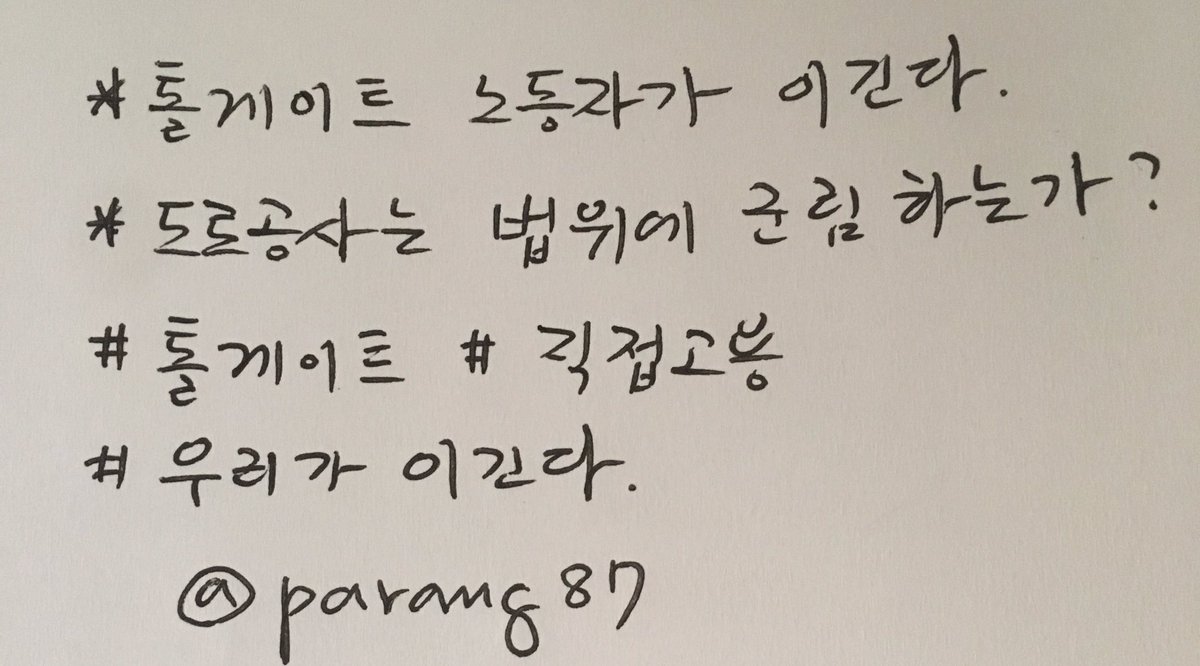 *톨게이트 노동자가 이긴다.
*도로공사는 법위에 군림 하는가?
#톨게이트 #직접고용
#우리가 이긴다.
@parang87